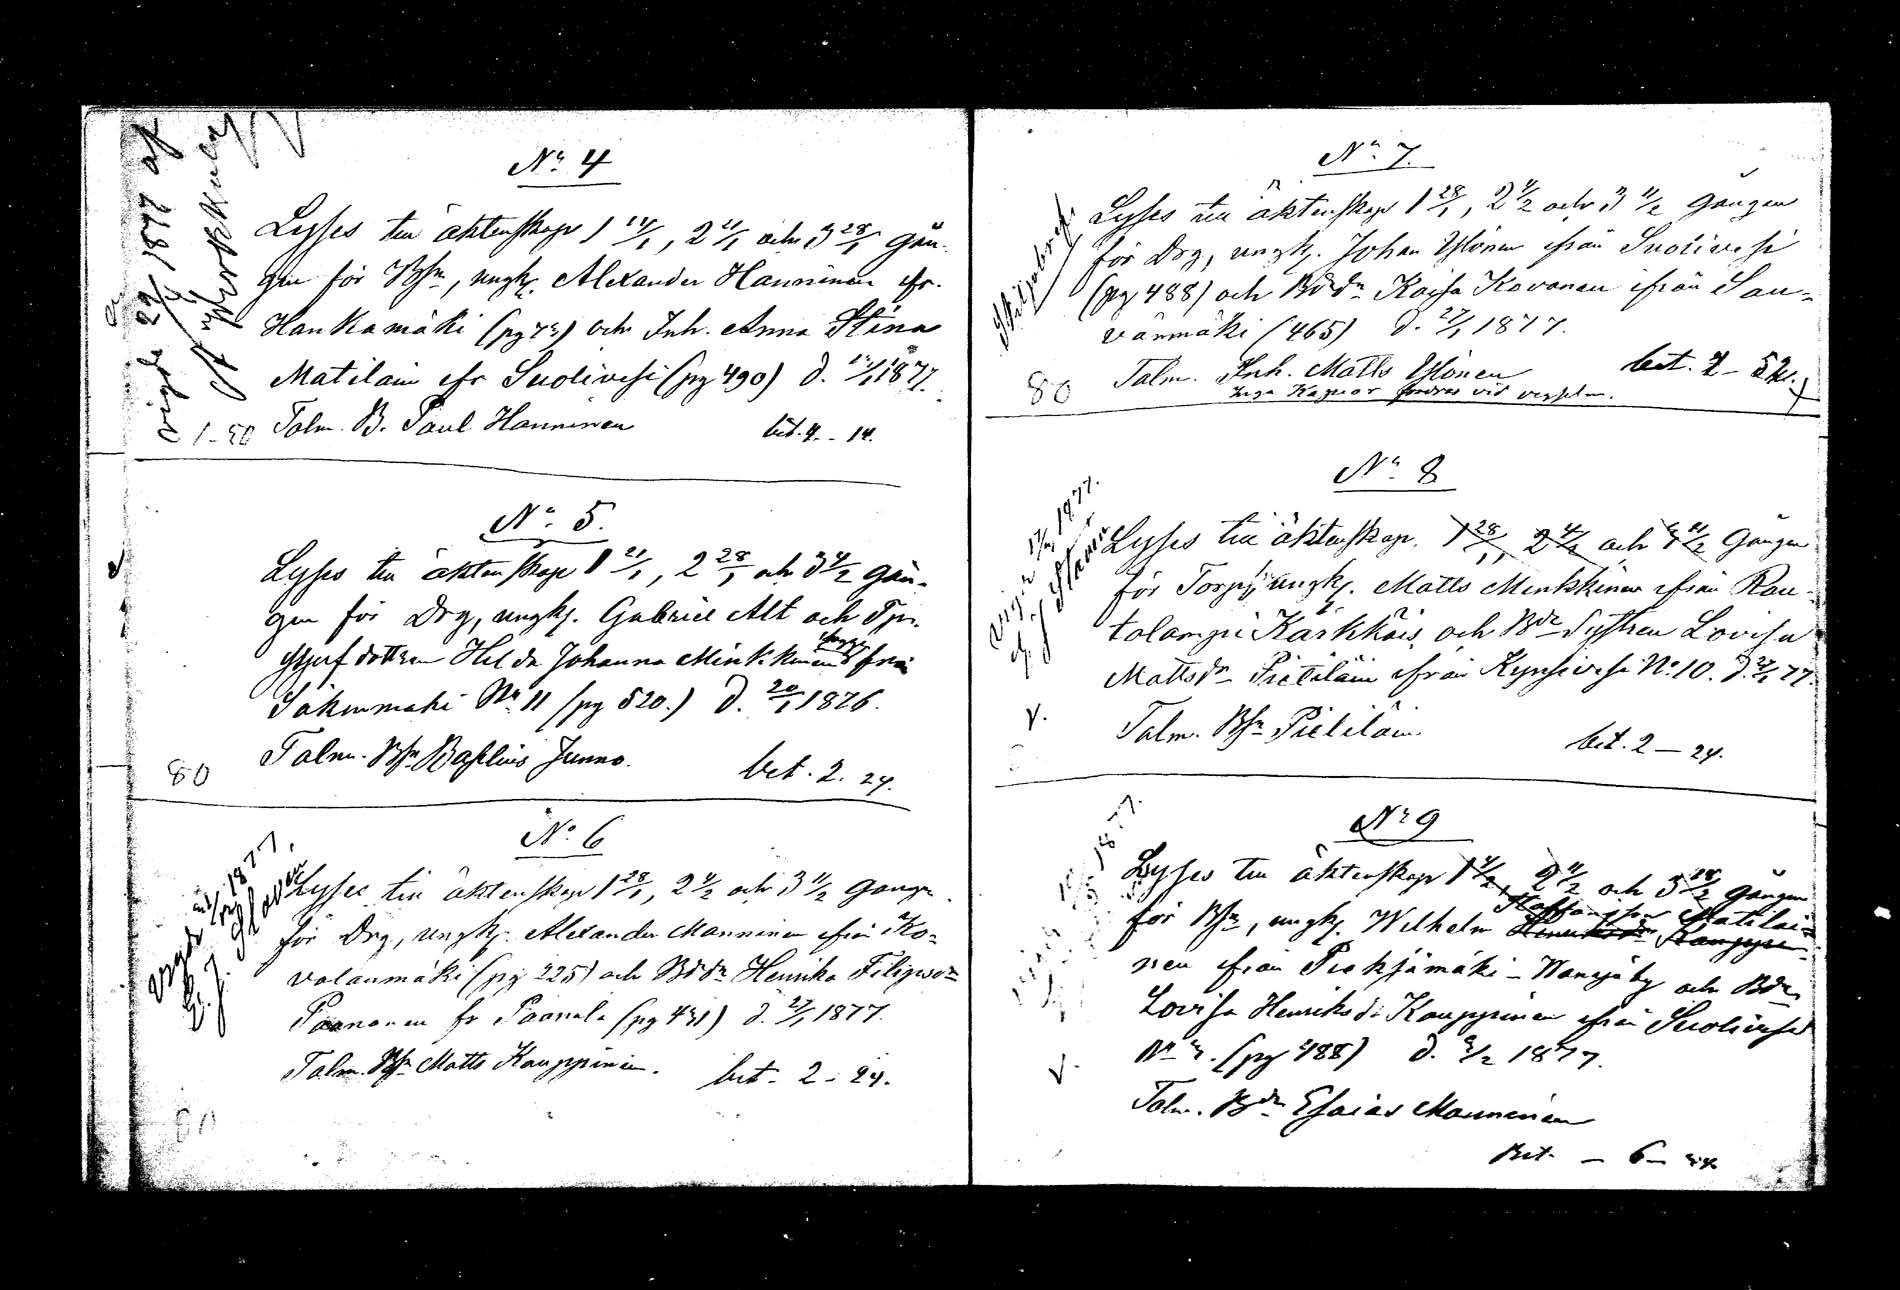 No. 4
Lyses till äktenskap 1 14/1, 2 21/1 och 3 28/1 gån-
gen för Bsn, ungk. Alexander Hänninen fr.
Hankamäki (pg 73) och Inh. Anna Stina
Matilain ifr Suolivesi (pg 490) d. 1877.
Talm. B. Paul Hänninen bet. 4. - 14.
1-50
vigde 29/4 1877 af
No. 5.
Lyses till äktenskap 1 21/1, 2 28/1 och 3 4/2 gån-
gen för Drg, ungk. Gabriel Alt och Tpr.
dottren Hilda Johanna Minkkinen från
Säkinmäki No 11 (pg 520.) d. 20/1 1876.
Talm. Bsn Basilius Junno. bet. 2. 24.
80
No. 6
Lyses till äktenskap 1 28/1, 2 4/2 och 3 11/2 gången
för Drg, ungk. Alexander Manninen från Ko-
volanmäki (pg 225) och Bdr Henrika Filipsdr
Paananen fr Paanala (pg 431) d. 27/1 1877.
Talm. Bsn Matts Kauppinen. bet. 2 - 24.
80
Vigde 1877,
No. 7.
Lyses till äktenskap 1 28/1, 2 4/2 och 3 11/2 gången
för Drg, ungk. Johan Ylönen från Suolivesi
(pg 488) och Bdr Kaisa Kovanen ifrån Sau-
vänmäki (465) d. 27/1 1877.
Talm. Inh. Matts Ylönen bet. 2 - 52.
Inga vid
80
No. 8
Lyses till äktenskap 1 28/1, 2 4/2 och 3 11/2 gången
för Torp, ungk. Matts Minkkinen ifrån Rau-
talampi Kärkkäis och Bdr Systren Lovisa
Mattsdr Pietiläin ifrån Kynsivesi No. 10. d. 27/1 77.
Talm. Bsn Pietiläin. bet. 2 - 24.
V.
1877.
No 9
Lyses till äktenskap 1 4/2, 2 11/2 och 3 18/2 gången
Staffansson Matiläi-
för Bsn, ungk. Wilhelm
nen från Pieksämäki - Wangjäby och Bdr
Lovisa Henriksdr Kauppinen från Suolivesi
No 3. (pg 488) d. 3/2 1877.
Talm. Bdn Esaias Manninen
Bet. - 6 -
V.
1877.